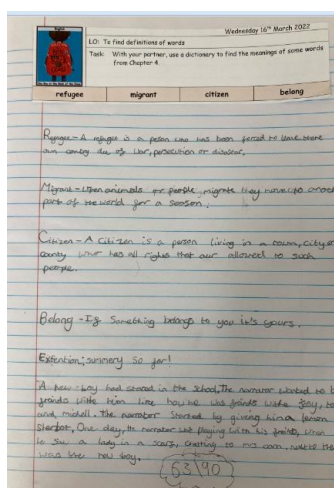 Wednesday 16th March 2022
LO: To find definitions of words
Task: With your partner, use a dictionary to find the meanings of some words
from Chapter 4.
refugee migrant citizen belong
Refugee - A refugee is a person who has been forced to leave there
own country due of war, persecution or disaster.
Migrant - When animals or people, migrate they move to
part of the world for a season.
Citizen - A citizen is a person living in a town, city or
county who has all rights that our allowed to such
people.
Belong - If Something belongs to you it's yours.
Extention; summery So far!
A new boy had stared in the school, The narrator wanted to
frainds with him like how he was frainds with
and The narrator Started by giving him a lemon
sherbot, One day, the narrator was playing with his frainds, when
he saw a lady in a scarf, chatting to mrs
was the new boy.
63/90